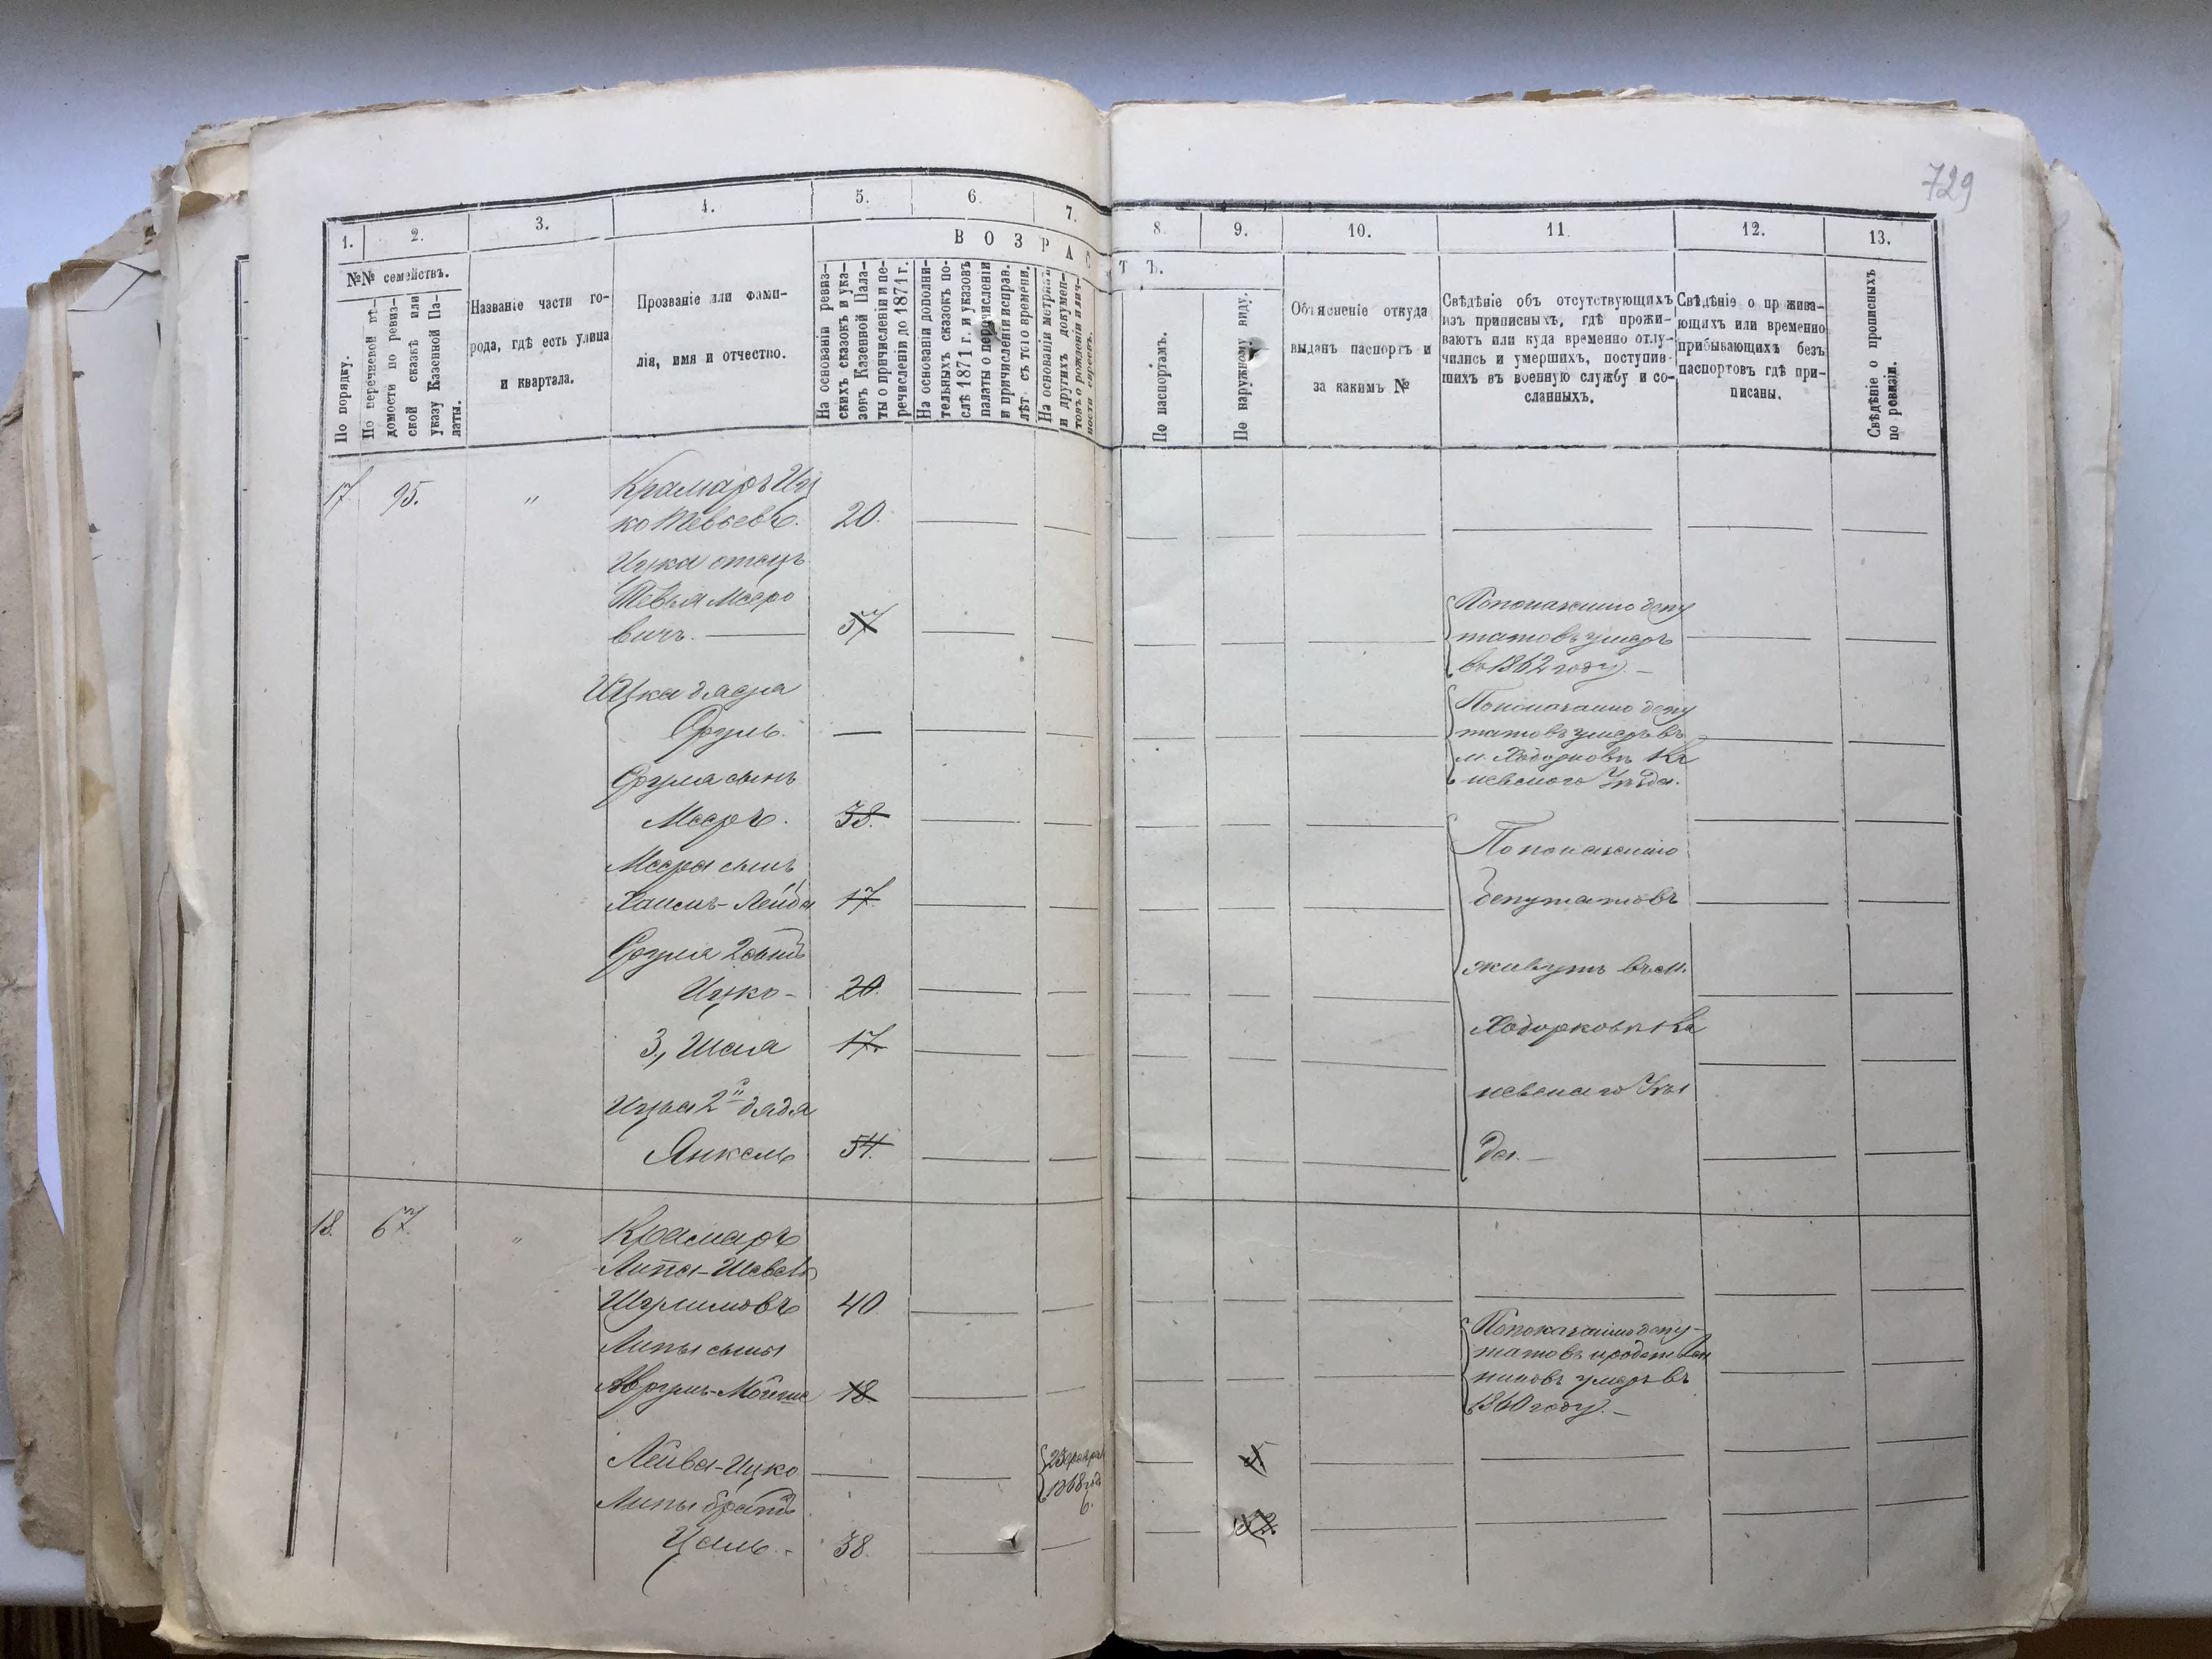 729
1. 2. 3. 4. 5. 6. 7. 8. 9. 10. 11. 12. 13.
ВОЗРАСТЪ.
№№ семействъ.
По порядку.
По перечневой вѣ-
домости по ревиз-
ской сказкѣ или
указу Казенной Па-
латы.
Названіе части го-
рода, гдѣ есть улица
и квартала.
Прозваніе или фами-
лія, имя и отчество.
На основаніи ревиз-
скихъ сказокъ и ука-
зовъ Казенной Пала-
ты о причисленіи и пе-
речисленіи до 1871 г.
На основаніи дополни-
тельныхъ сказокъ по-
слѣ 1871 г. и указовъ
палаты о перечисленіи
и причисленіи исправ.
лѣтъ съ того времени.
На основаніи метрик.
и другихъ докумен-
товъ о рожденіи и лич-
ности евреевъ.
По паспортамъ.
По наружному виду.
Объясненіе откуда
выданъ паспортъ и
за какимъ №
Свѣдѣніе объ отсутствующихъ
изъ приписныхъ, гдѣ прожи-
ваютъ или куда временно отлу-
чились и умершихъ, поступив-
шихъ въ военную службу и со-
сланныхъ.
Свѣдѣніе о прожива-
ющихъ или временно
прибывающихъ безъ
паспортовъ гдѣ при-
писаны.
Свѣдѣніе о прописныхъ
по ревизіи.
17 95. " Крамаръ Иц
ко Тевьевъ. 20.
Ицка отецъ
Тевья Мееро
вичъ. 57
По показанію депу
татовъ умеръ
въ 1862 году. –
Ицка дядя
Сруль. —
По показанію депу
татовъ умеръ въ
м. Ходорковѣ Ка
невскаго Уѣзда.
Сруля сынъ
Мееръ. 38.
Меера сынъ
Хаимъ-Лейба 17.
Сруля 2 сынъ
Ицко - 20.
3., Шая 17.
Ицка 2й дядя
Янкель 54.
По показанію
депутатовъ
живутъ въ м.
Ходорковѣ Ка
невскаго Уѣз
да. –
18. 67. " Крамаръ
Липа-
Шулимовъ 40.
Липы сыны
Аврумъ-Мойше 18.
По показанію депу-
татовъ и родствен
никовъ умеръ въ
1860 году. –
Лейба-Ицко
1868 года
6.
Липы братъ
38.